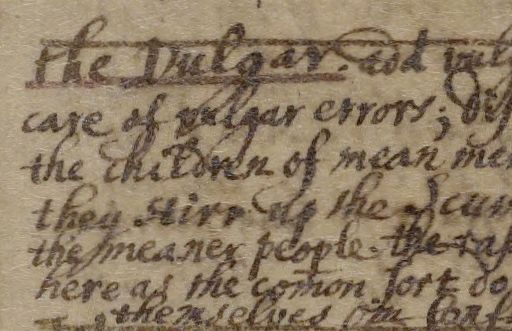 the Vulgar. and vulg
care of vulgar errors; dis
the children of mean men
they stirr up the Scum
the meaner people. the ras
here as the com̄on sort do
themselves